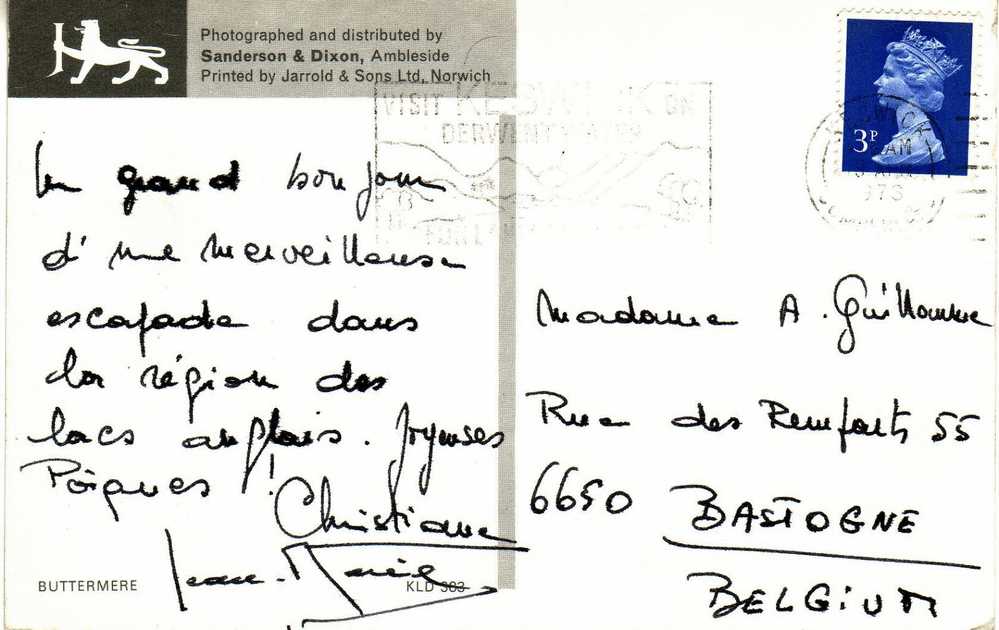 Photographed and distributed by
Sanderson & Dixon, Ambleside
Printed by Jarrold & Sons Ltd, Norwich
VISIT KESWICK ON
DERWENTWATER
3P
AM
Un grand bonjour
d'une merveilleuse
escapade dans
la région des
lacs anglais. Joyeuses
Pâques !
Christiane
Jean-Marie
Madame A. Guillaume
Rue des Remparts 55
6650 BASTOGNE
BELGIUM
BUTTERMERE
KLD 383